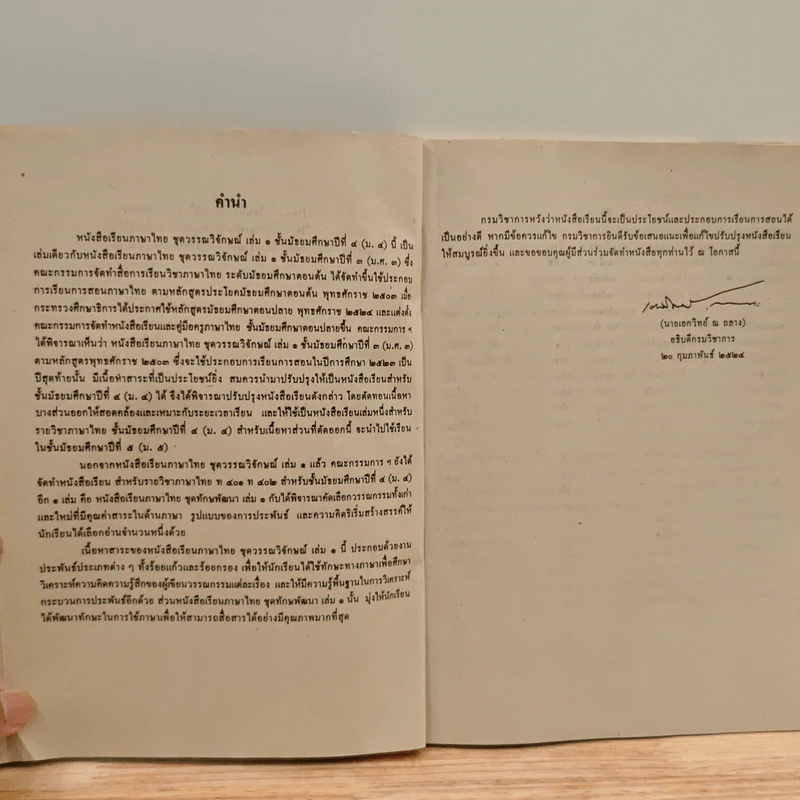 คำนำ
หนังสือเรียนภาษาไทย ชุดวรรณวิจักษณ์ เล่ม ๑ ชั้นมัธยมศึกษาปีที่ ๔ (ม. ๔) นี้ เป็น
เล่มเดียวกับหนังสือเรียนภาษาไทย ชุดวรรณวิจักษณ์ เล่ม ๑ ชั้นมัธยมศึกษาปีที่ ๓ (ม.ศ. ๓) ซึ่ง
คณะกรรมการจัดทำสื่อการเรียนวิชาภาษาไทย ระดับมัธยมศึกษาตอนต้น ได้จัดทำขึ้นใช้ประกอบ
การเรียนการสอนภาษาไทย ตามหลักสูตรประโยคมัธยมศึกษาตอนต้น พุทธศักราช ๒๕๐๓ เมื่อ
กระทรวงศึกษาธิการได้ประกาศใช้หลักสูตรมัธยมศึกษาตอนปลาย พุทธศักราช ๒๕๒๔ และแต่งตั้ง
คณะกรรมการจัดทำหนังสือเรียนและคู่มือครูภาษาไทย ชั้นมัธยมศึกษาตอนปลายขึ้น คณะกรรมการ ฯ
ได้พิจารณาเห็นว่า หนังสือเรียนภาษาไทย ชุดวรรณวิจักษณ์ เล่ม ๑ ชั้นมัธยมศึกษาปีที่ ๓ (ม.ศ. ๓)
ตามหลักสูตรพุทธศักราช ๒๕๐๓ ซึ่งจะใช้ประกอบการเรียนการสอนในปีการศึกษา ๒๕๒๓ เป็น
ปีสุดท้ายนั้น มีเนื้อหาสาระที่เป็นประโยชน์ยิ่ง สมควรนำมาปรับปรุงให้เป็นหนังสือเรียนสำหรับ
ชั้นมัธยมศึกษาปีที่ ๔ (ม. ๔) ได้ จึงได้พิจารณาปรับปรุงหนังสือเรียนดังกล่าว โดยตัดทอนเนื้อหา
บางส่วนออกให้สอดคล้องและเหมาะกับระยะเวลาเรียน และให้ใช้เป็นหนังสือเรียนเล่มหนึ่งสำหรับ
รายวิชาภาษาไทย ชั้นมัธยมศึกษาปีที่ ๔ (ม. ๔) สำหรับเนื้อหาส่วนที่ตัดออกนี้ จะนำไปใช้เรียน
ในชั้นมัธยมศึกษาปีที่ ๕ (ม. ๕)
นอกจากหนังสือเรียนภาษาไทย ชุดวรรณวิจักษณ์ เล่ม ๑ แล้ว คณะกรรมการ ฯ ยังได้
จัดทำหนังสือเรียน สำหรับรายวิชาภาษาไทย ท ๔๐๑ ท ๔๐๒ สำหรับชั้นมัธยมศึกษาปีที่ ๔ (ม. ๔)
อีก ๑ เล่ม คือ หนังสือเรียนภาษาไทย ชุดทักษพัฒนา เล่ม ๑ กับได้พิจารณาคัดเลือกวรรณกรรมทั้งเก่า
และใหม่ที่มีคุณค่าสาระในด้านภาษา รูปแบบของการประพันธ์ และความคิดริเริ่มสร้างสรรค์ให้
นักเรียนได้เลือกอ่านจำนวนหนึ่งด้วย
เนื้อหาสาระของหนังสือเรียนภาษาไทย ชุดวรรณวิจักษณ์ เล่ม ๑ นี้ ประกอบด้วยงาน
ประพันธ์ประเภทต่าง ๆ ทั้งร้อยแก้วและร้อยกรอง เพื่อให้นักเรียนได้ใช้ทักษะทางภาษาเพื่อศึกษา
วิเคราะห์ความคิดความรู้สึกของผู้เขียนวรรณกรรมแต่ละเรื่อง และให้มีความรู้พื้นฐานในการวิเคราะห์
กระบวนการประพันธ์อีกด้วย ส่วนหนังสือเรียนภาษาไทย ชุดทักษพัฒนา เล่ม ๑ นั้น มุ่งให้นักเรียน
ได้พัฒนาทักษะในการใช้ภาษาเพื่อให้สามารถสื่อสารได้อย่างมีคุณภาพมากที่สุด
กรมวิชาการหวังว่าหนังสือเรียนนี้จะเป็นประโยชน์และประกอบการเรียนการสอนได้
เป็นอย่างดี หากมีข้อควรแก้ไข กรมวิชาการยินดีรับข้อเสนอแนะเพื่อแก้ไขปรับปรุงหนังสือเรียน
ให้สมบูรณ์ยิ่งขึ้น และขอขอบคุณผู้มีส่วนร่วมจัดทำหนังสือทุกท่านไว้ ณ โอกาสนี้
(นายเอกวิทย์ ณ ถลาง)
อธิบดีกรมวิชาการ
๒๐ กุมภาพันธ์ ๒๕๒๔